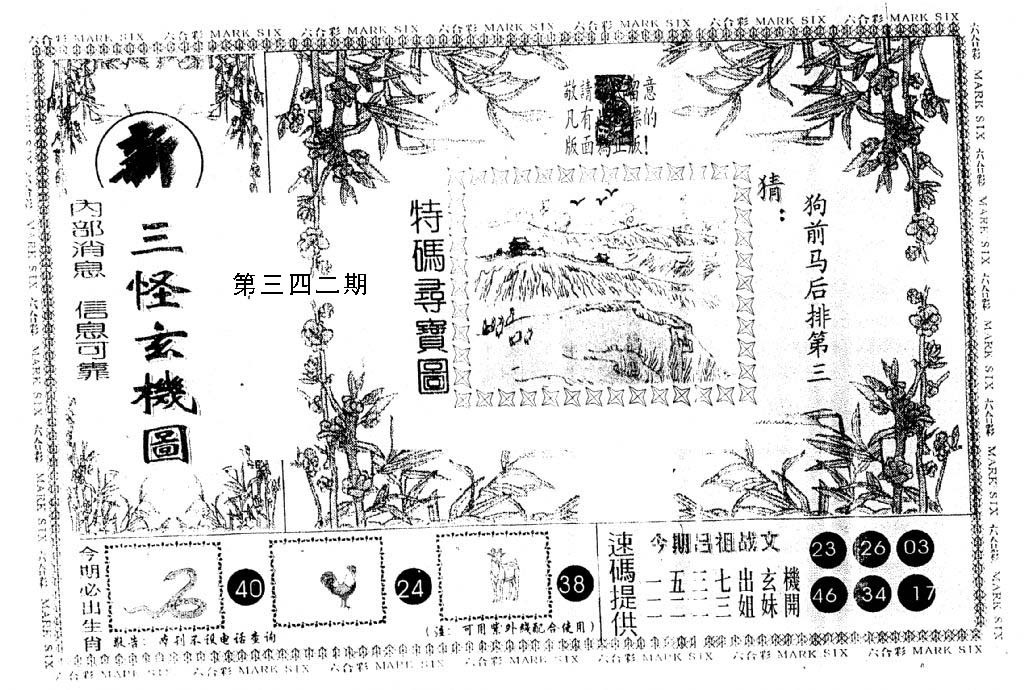 六合彩 MARK SIX 六合彩 MARK SIX 六合彩 MARK SIX 六合彩 MARK SIX 六合彩 MARK SIX 六合彩 MARK SIX 六合彩 MARK SIX
新
三怪玄機圖
內部消息 信息可靠
第三四二期
敬請 留意
凡有 的
版面為正版!
特碼尋寶圖
猜:
狗前马后排第三
今明必出生肖
40
24
38
敬告: 本刊不设电话查询
(注: 可用紫外线配合使用)
速碼提供
今期吕祖战文
一五三七出玄機
一二二三姐妹開
23 26 03
46 34 17
六合彩 MARK SIX 六合彩 MARK SIX 六合彩 MARK SIX 六合彩 MARK SIX 六合彩 MARK SIX 六合彩 MARK SIX 六合彩 MARK SIX